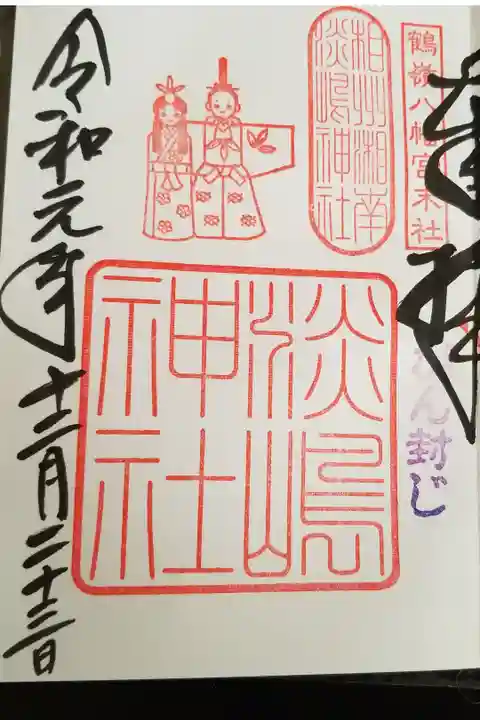 奉拝
鶴嶺八幡宮末社
がん封じ
相州湘南
淡嶋神社
淡嶋
神社
令和元年十二月二十三日